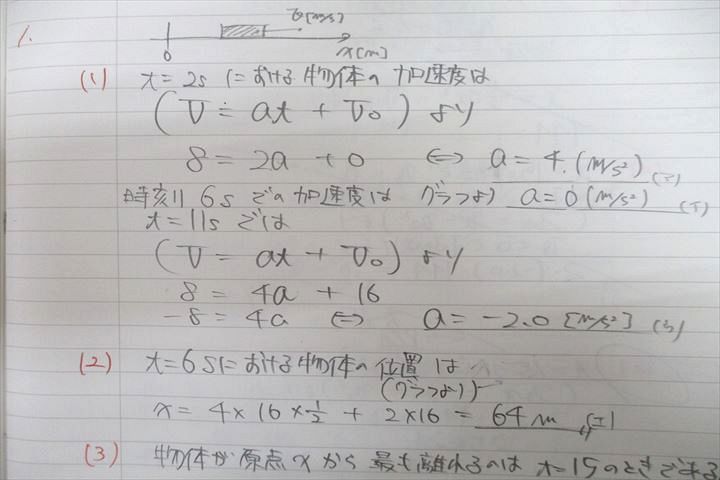 1.
v[m/s]
0 x[m]
(1) t=2sにおける物体の加速度は
(v = at + v₀) より
8 = 2a + 0 ⇔ a = 4. (m/s²)
時刻 6sでの加速度は グラフより a = 0 (m/s²)
t=11sでは
(v = at + v₀) より
8 = 4a + 16
-8 = 4a ⇔ a = -2.0 [m/s²] (3)
(2) t=6sにおける物体の位置は
(グラフより)
x = 4×16×1/2 + 2×16 = 64m
(3) 物体が原点xから最も離れるのは t=15のときである